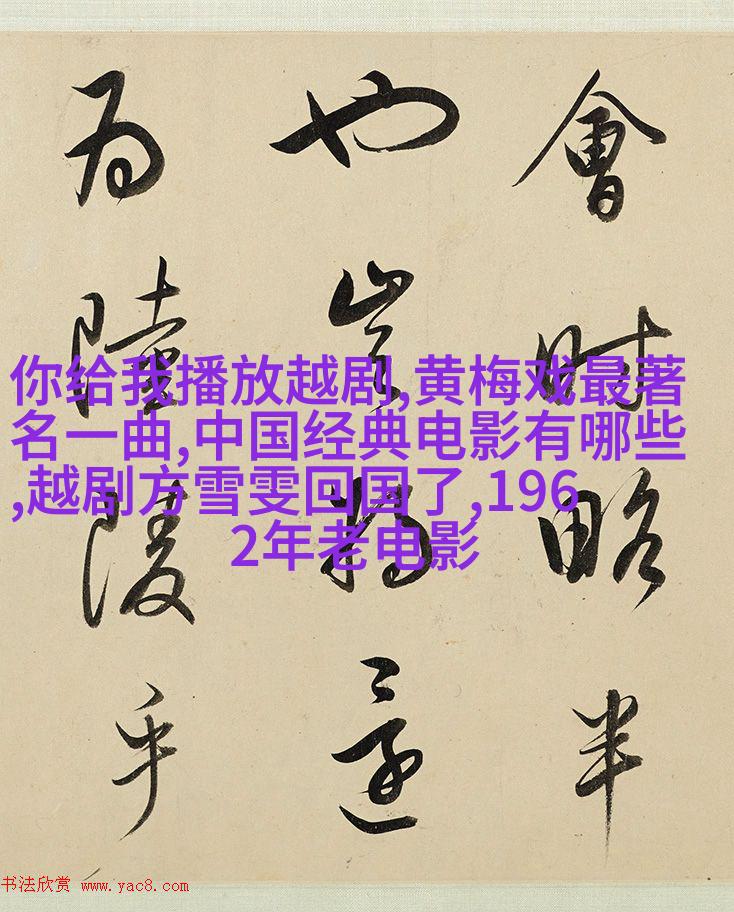 會時略半
也豈將還
為陸陵乎
你给我播放越剧,黄梅戏最著
名一曲,中国经典电影有哪些
,越剧方雪雯回国了,196
2年老电影
书法欣赏 www.yac8.com